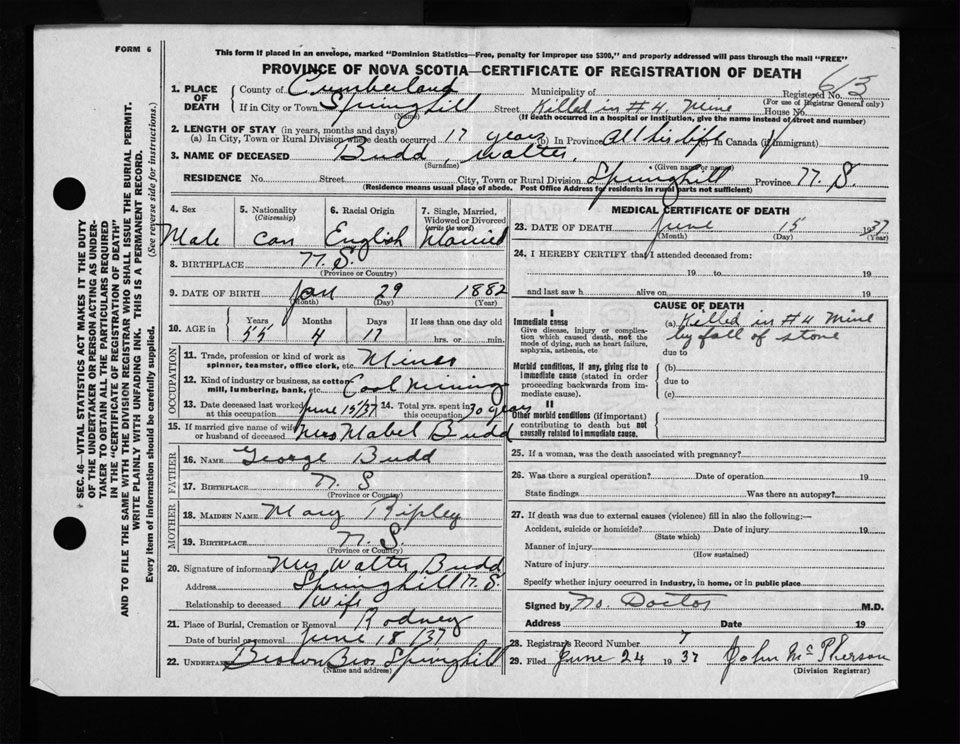 FORM 6
This form if placed in an envelope, marked "Dominion Statistics—Free, penalty for improper use $300," and properly addressed will pass through the mail "FREE"
PROVINCE OF NOVA SCOTIA—CERTIFICATE OF REGISTRATION OF DEATH
1. PLACE OF DEATH County of Cumberland Municipality of Registered No. 63
(For use of Registrar General only)
If in City or Town Springhill Street Killed in #4 Mine House No.
(Name) (If death occurred in a hospital or institution, give the name instead of street and number)
2. LENGTH OF STAY (in years, months and days)
(a) In City, Town or Rural Division where death occurred 17 years (b) In Province All his life (c) In Canada (if immigrant)
3. NAME OF DECEASED Budd, Walter,
(Surname) (Given name or names)
RESIDENCE No. Street City, Town or Rural Division Springhill Province N. S.
(Residence means usual place of abode. Post Office Address for residents in rural parts not sufficient)
4. Sex 5. Nationality (Citizenship) 6. Racial Origin 7. Single, Married, Widowed or Divorced (write the word)
Male Can English Married
8. BIRTHPLACE N. S.
(Province or Country)
9. DATE OF BIRTH Jan 29 1882
(Month) (Day) (Year)
10. AGE in Years Months Days If less than one day old
55 4 17 hrs. or min.
OCCUPATION
11. Trade, profession or kind of work as spinner, teamster, office clerk, etc. Miner
12. Kind of industry or business, as cotton mill, lumbering, bank, etc. Coal Mining
13. Date deceased last worked at this occupation June 15/37 14. Total yrs. spent in this occupation 30 years
15. If married give name of wife or husband of deceased Mrs Mabel Budd
FATHER
16. NAME George Budd
17. BIRTHPLACE N. S
(Province or Country)
MOTHER
18. MAIDEN NAME Mary Ripley
19. BIRTHPLACE N. S.
(Province or Country)
20. Signature of informant Mrs Walter Budd
Address Springhill N. S.
Relationship to deceased Wife
21. Place of Burial, Cremation or Removal Rodney
Date of burial or removal June 18/37
22. UNDERTAKER Brown Bros Springhill
(Name and address)
MEDICAL CERTIFICATE OF DEATH
23. DATE OF DEATH June 15 1937
(Month) (Day) (Year)
24. I HEREBY CERTIFY that I attended deceased from:
19 to 19
and last saw h alive on 19
CAUSE OF DEATH
I
Immediate cause
Give disease, injury or complication which caused death, not the mode of dying, such as heart failure, asphyxia, asthenia, etc.
(a) Killed in #4 Mine
by fall of stone
due to
Morbid conditions, if any, giving rise to immediate cause (stated in order proceeding backwards from immediate cause).
(b)
due to
(c)
II
Other morbid conditions (if important) contributing to death but not causally related to immediate cause.
25. If a woman, was the death associated with pregnancy?
26. Was there a surgical operation? Date of operation 19
State findings Was there an autopsy?
27. If death was due to external causes (violence) fill in also the following:—
Accident, suicide or homicide? Date of injury 19
(State which)
Manner of injury
(How sustained)
Nature of injury
Specify whether injury occurred in industry, in home, or in public place
Signed by No Doctor M.D.
Address Date 19
28. Registrar's Record Number 7
29. Filed June 24 1937 John McPherson
(Division Registrar)
SEC. 46—VITAL STATISTICS ACT MAKES IT THE DUTY
OF THE UNDERTAKER OR PERSON ACTING AS UNDER-
TAKER TO OBTAIN ALL THE PARTICULARS REQUIRED
IN THE "CERTIFICATE OF REGISTRATION OF DEATH"
AND TO FILE THE SAME WITH THE DIVISION REGISTRAR WHO SHALL ISSUE THE BURIAL PERMIT.
WRITE PLAINLY WITH UNFADING INK. THIS IS A PERMANENT RECORD.
Every item of information should be carefully supplied. (See reverse side for instructions.)